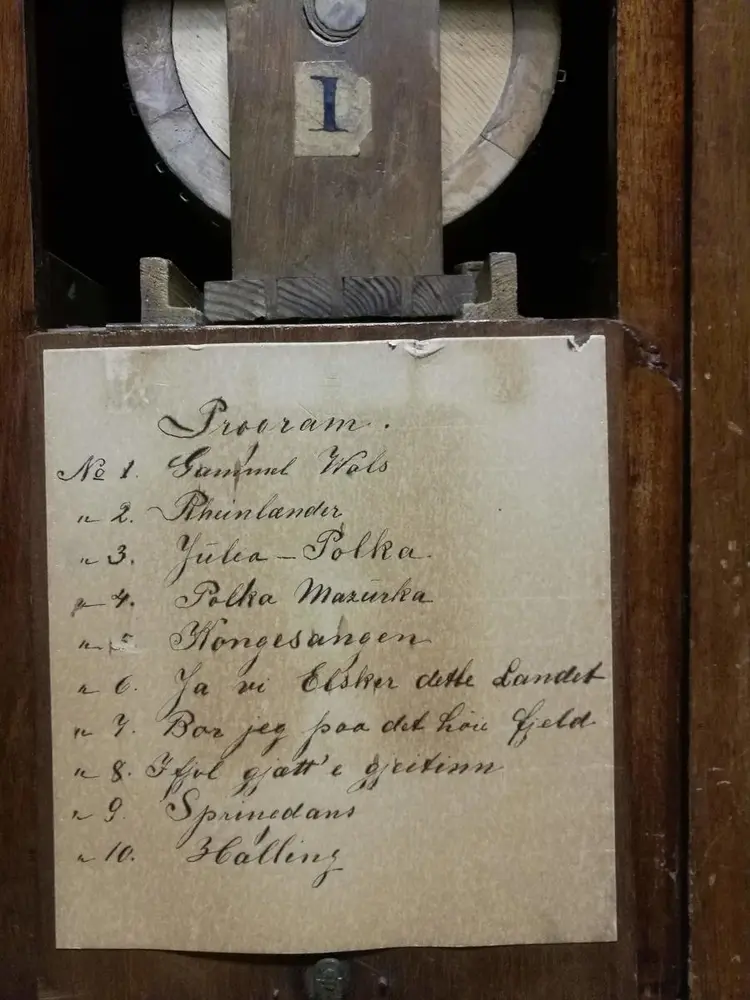 1
Program.
No 1. Gammel Wals
" 2. Rheinlænder
" 3. Julia - Polka.
" 4. Polka Mazurka
" 5 Kongesangen
" 6. Ja vi Elsker dette Landet
" 7. Bor jeg paa det høie fjeld
" 8. Ifjol gjætt'e gjeitinn
" 9. Springdans
" 10. Halling